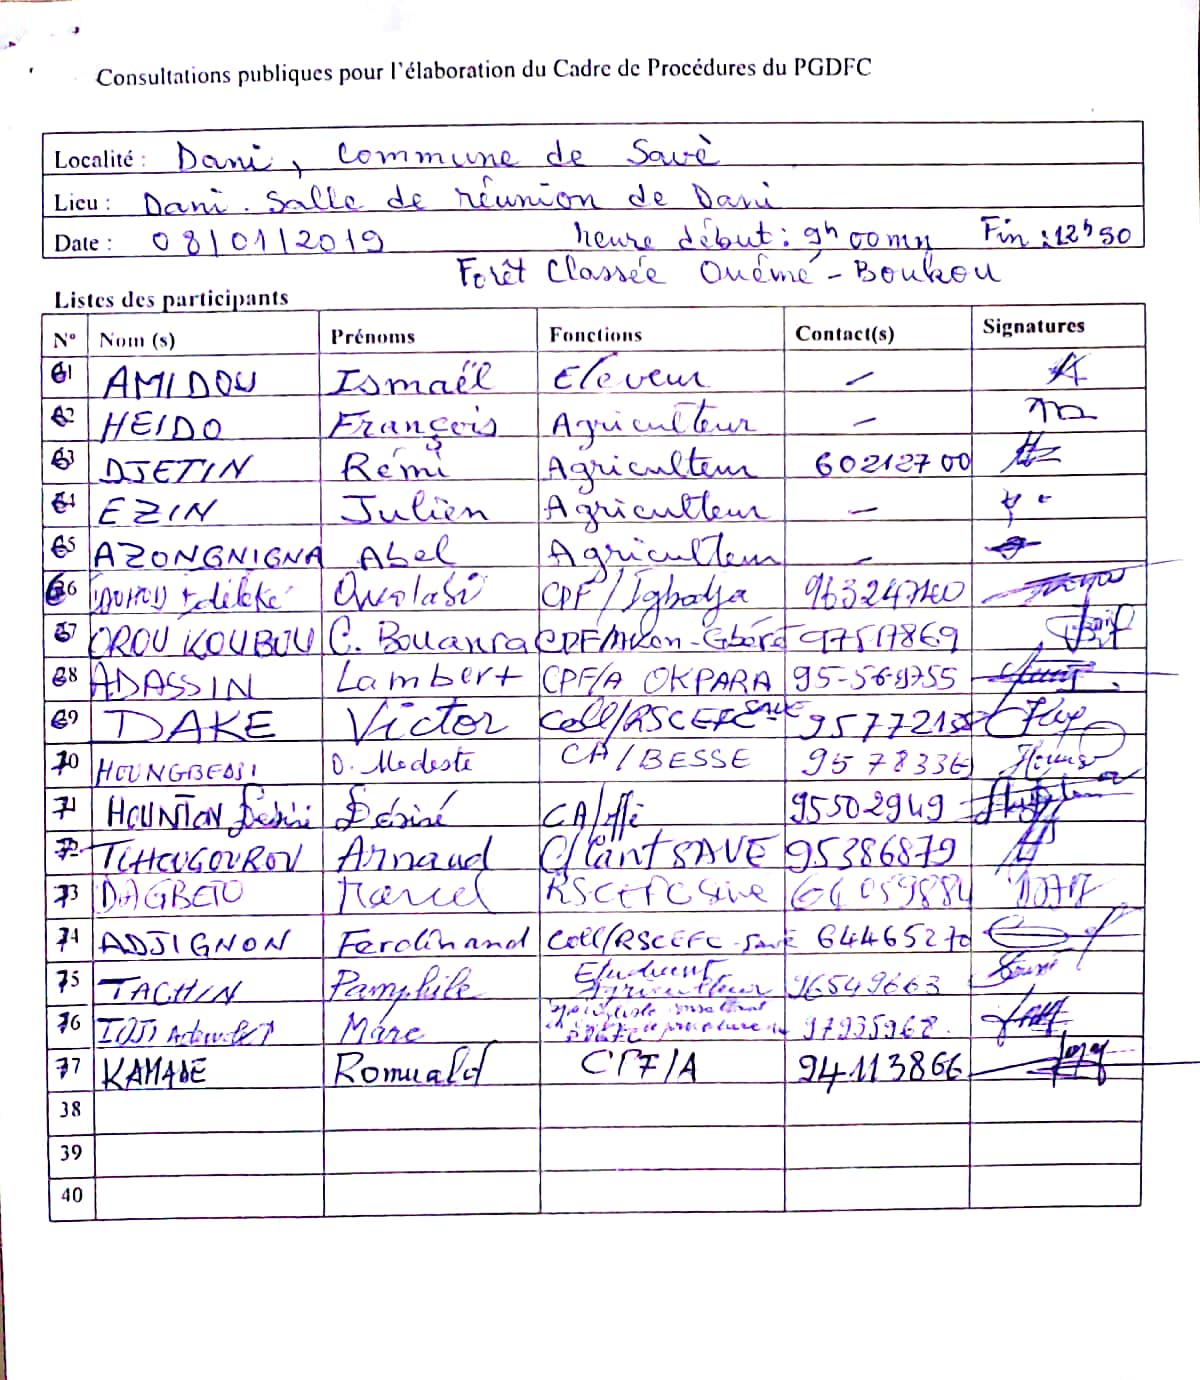 Consultations publiques pour l'élaboration du Cadre de Procédures du PGDFC
Localité : Dani, Commune de Savè
Lieu : Dani. Salle de réunion de Dani
Date : 08/01/2019 heure début : 9h 00mn Fin : 12h50
Forêt Classée Ouémé - Boukou
Listes des participants
N° Nom (s) Prénoms Fonctions Contact(s) Signatures
61 AMIDOU Ismaël Eleveur —
62 HEIDO François Agriculteur —
63 DJETIN Rémi Agriculteur 60212700
64 EZIN Julien Agriculteur —
65 AZONGNIGNA Abel Agriculteur —
66 CPF/Igbodja
67 OROU KOUBOU C. Bouanra 97517869
68 ADASSIN Lambert CPF/A OKPARA
69 DAKE Victor Coll/RSCEFC SAVE
70 HOUNGBEDJI D. Modeste CA/BESSE 9578336
71 HOUNTON Désiré Désiré 95502949
72 TCHOUGOUROU Arnaud SAVE 95386879
73 DAGBETO Marcel RSCEFC
74 ADJIGNON Ferdinand Coll/RSCEFC-Savè 64465270
75 TACHIN Pamphile Etudiant Agriculteur 96549663
76 Marc 97935968
77 KAMADE Romuald CPF/A 94113866
38
39
40